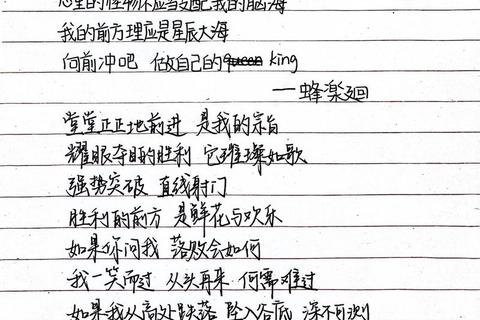 心里的怪物不应当支配我的脑海
我的前方理应是星辰大海
向前冲吧 做自己的queen king
——蜂楽廻
堂堂正正地前进 是我的宗旨
耀眼夺目的胜利 它璀璨如歌
强势突破 直线射门
胜利的前方 是鲜花与欢乐
如果你问我 落败会如何
我一笑而过 从头再来 何需难过
如果我从高处跌落 坠入谷底 深不可测